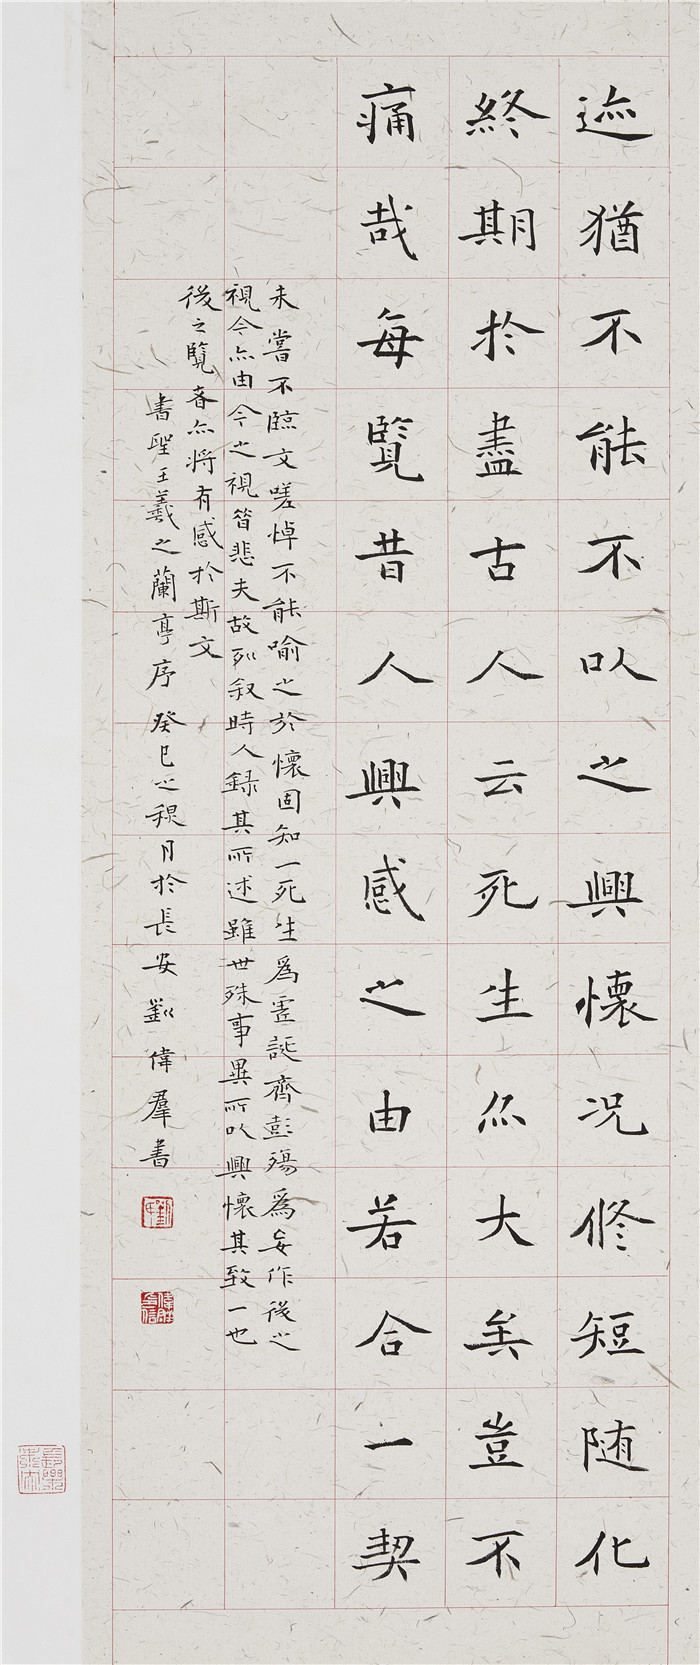 迹猶不能不以之興懷况修短随化
終期於盡古人云死生亦大矣豈不
痛哉每覽昔人興感之由若合一契
未嘗不臨文嗟悼不能喻之於懷固知一死生爲虛誕齊彭殤爲妄作後之
視今亦由今之視昔悲夫故列叙時人録其所述雖世殊事異所以興懷其致一也
後之覽者亦將有感於斯文
書聖王羲之蘭亭序 癸巳之月於長安劉偉羣書